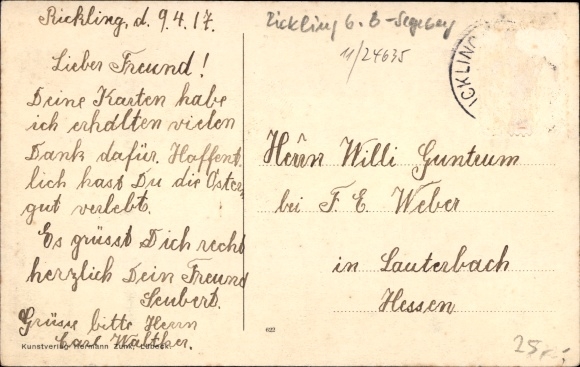 Rickling, d. 9.4.17.
Lieber Freund!
Deine Karten habe
ich erhalten vielen
Dank dafür. Hoffent
lich hast Du die Oster,
gut verlebt.
Es grüsst Dich recht
herzlich Dein Freund
Seubert.
Grüsse bitte Herrn
Carl Walther.
Kunstverlag Hermann Zunk, Lübeck.
Rickling b. B-Segeberg
11/24635
ICKLING
Herrn Willi Guntrum
bei F. E. Weber
in Lauterbach
Hessen
622
25.-